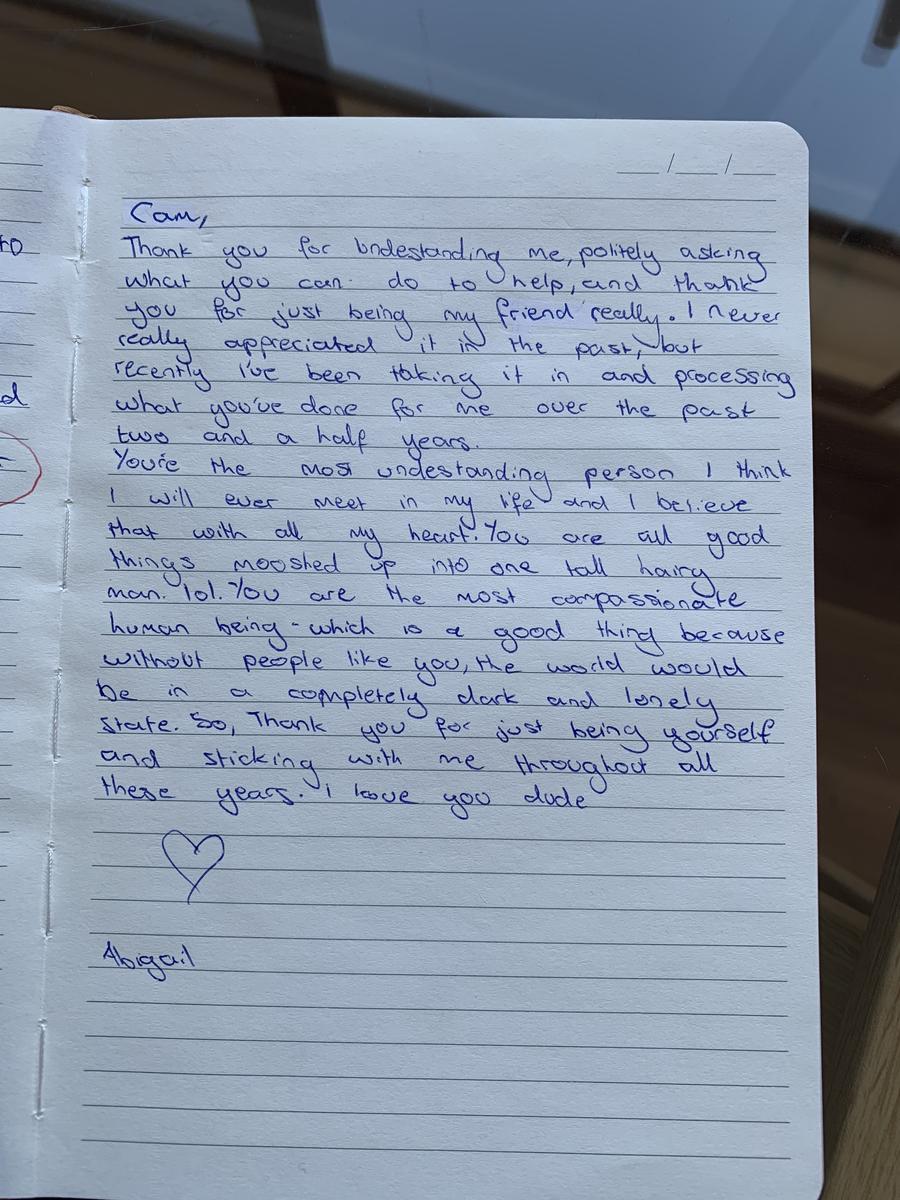 __/__/__
Cam,
Thank you for undestanding me, politely asking
what you can do to help, and thank
you for just being my friend really. I never
really appreciated it in the past, but
recently I've been taking it in and processing
what you've done for me over the past
two and a half years.
You're the most undestanding person I think
I will ever meet in my life and I believe
that with all my heart. You are all good
things mooshed up into one tall hairy
man. lol. You are the most compassionate
human being - which is a good thing because
without people like you, the world would
be in a completely dark and lonely
state. So, Thank you for just being yourself
and sticking with me throughout all
these years. I love you dude
Abigail
to
d